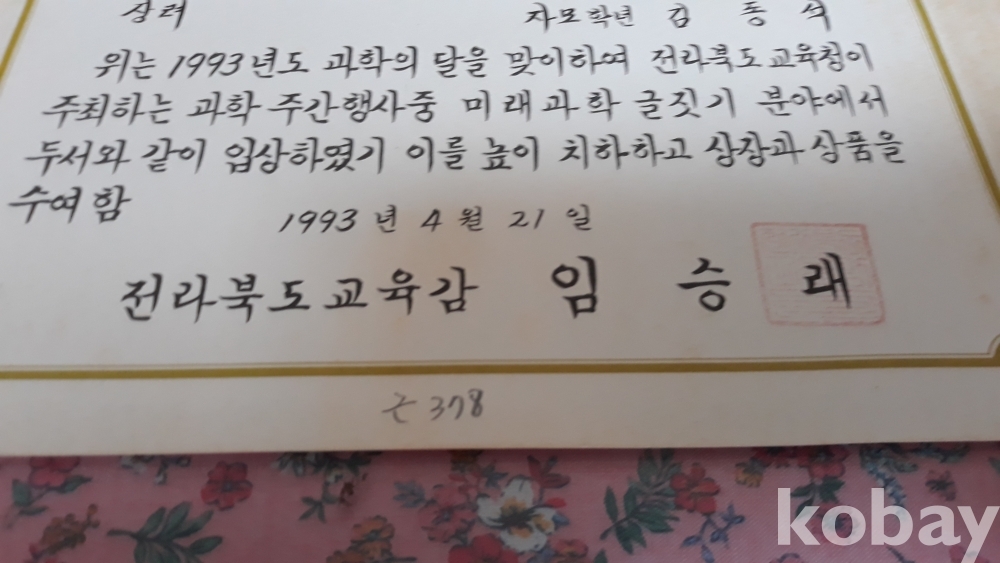 장려 자모학년 김동석
위는 1993년도 과학의 달을 맞이하여 전라북도교육청이
주최하는 과학 주간행사중 미래과학 글짓기 분야에서
두서와 같이 입상하였기 이를 높이 치하하고 상장과 상품을
수여함
1993년 4월 21일
전라북도교육감 임승래
378
kobay